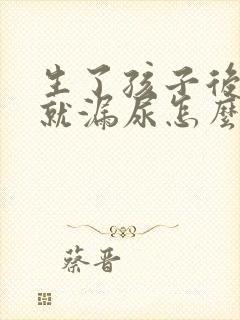 生了孩子後
就漏尿怎麼
蔡晋